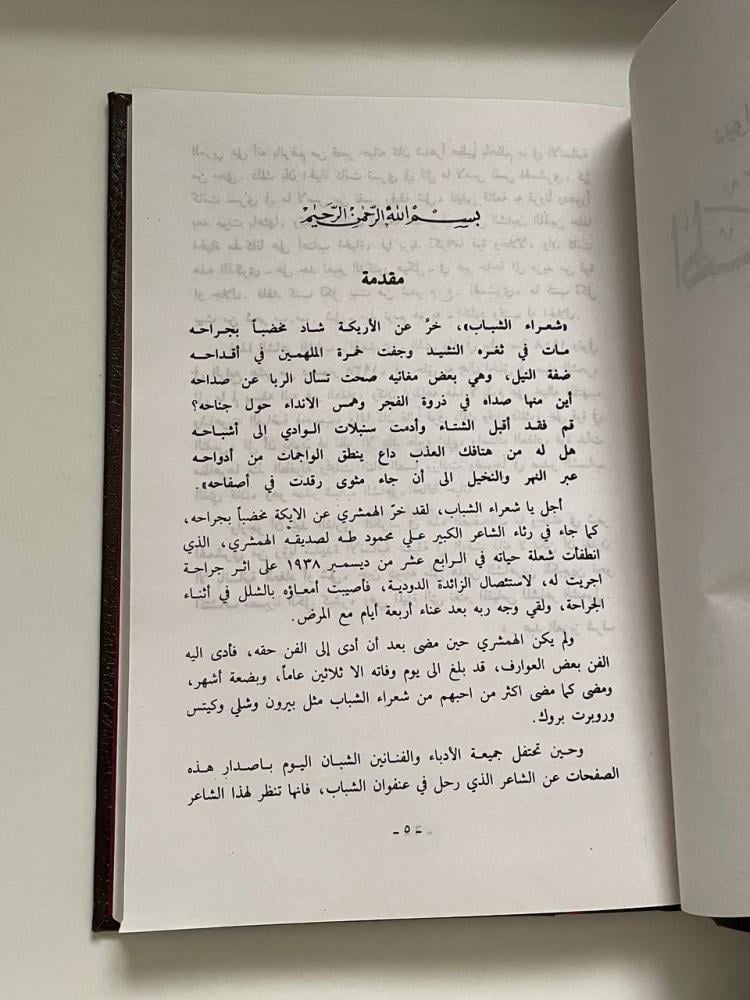 بسم الله الرحمن الرحيم
مقدمة
«شعراء الشباب»، خرّ عن الأريكة شاد مخضباً بجراحه
مات في ثغره النشيد وجفت خمرة الملهمين في أقداحه
ضفة النيل، وهي بعض مغانيه صحت تسأل الربا عن صداحه
أين منها صداه في ذروة الفجر وهمس الانداء حول جناحه؟
قم فقد أقبل الشتاء وأدمت سنبلات الوادي الى أشباحه
هل له من هتافك العذب داع ينطق الواجمات من أدواحه
عبر النهر والنخيل الى أن جاء مثوى رقدت في أصفاحه».
أجل يا شعراء الشباب، لقد خرّ الهمشري عن الايكة مخضباً بجراحه،
كما جاء في رثاء الشاعر الكبير علي محمود طه لصديقه الهمشري، الذي
انطفأت شعلة حياته في الرابع عشر من ديسمبر ١٩٣٨ على اثر جراحة
اجريت له، لاستئصال الزائدة الدودية، فأصيبت أمعاؤه بالشلل في أثناء
الجراحة، ولقي وجه ربه بعد عناء أربعة أيام مع المرض.
ولم يكن الهمشري حين مضى بعد أن أدى إلى الفن حقه، فأدى اليه
الفن بعض العوارف، قد بلغ الى يوم وفاته الا ثلاثين عاماً، وبضعة أشهر،
ومضى كما مضى اكثر من احبهم من شعراء الشباب مثل بيرون وشلي وكيتس
وروبرت بروك.
وحين تحتفل جميعة الأدباء والفنانين الشبان اليوم باصدار هذه
الصفحات عن الشاعر الذي رحل في عنفوان الشباب، فانها تنظر لهذا الشاعر
ـ ٥ ـ